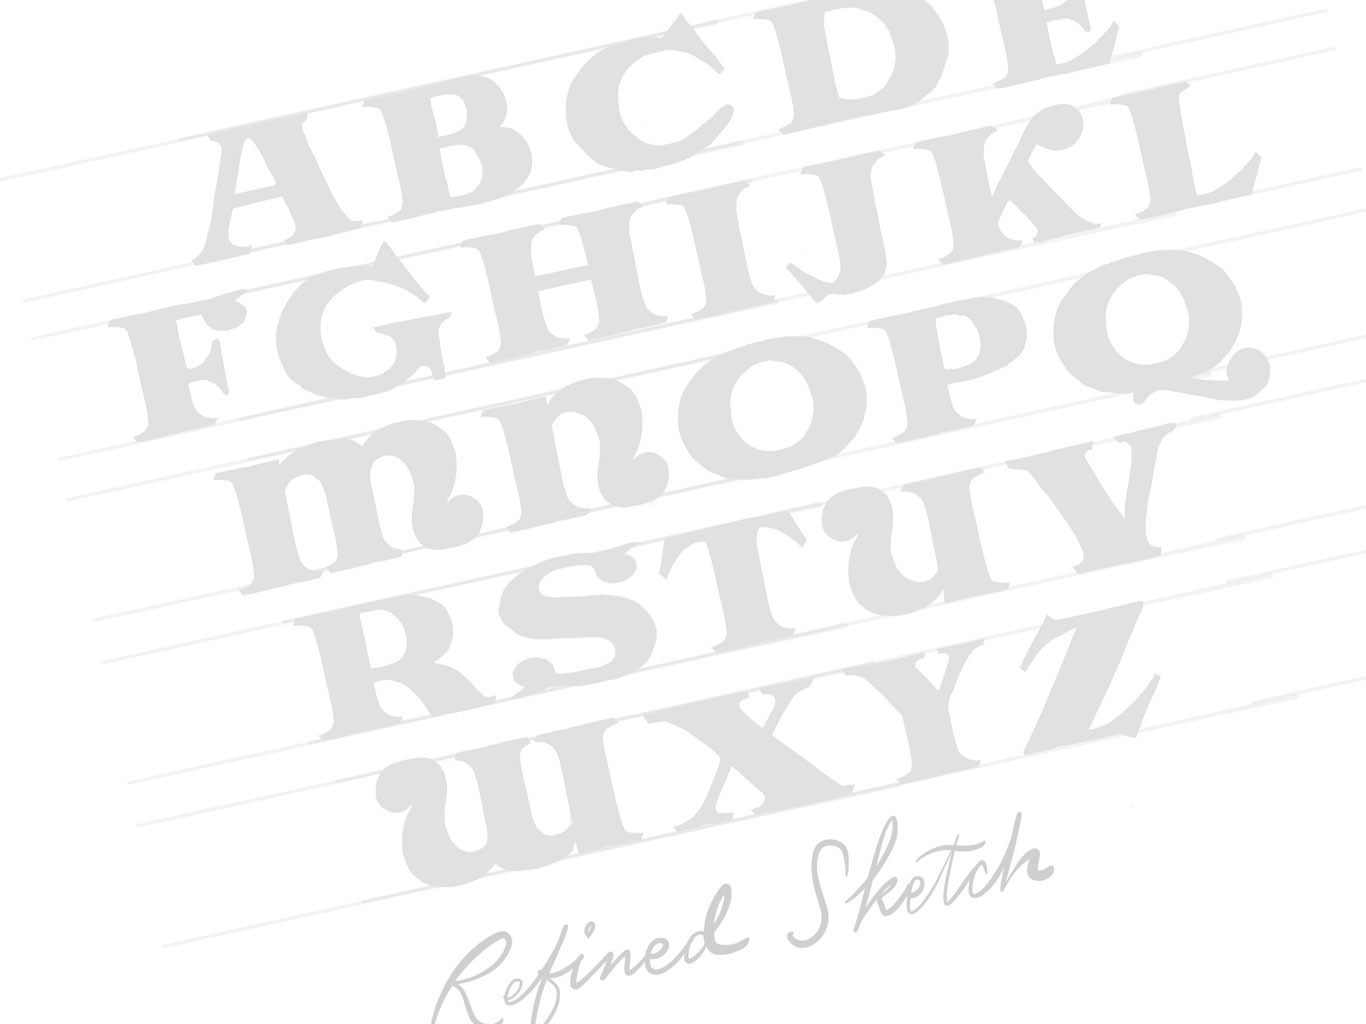 ABCDE
FGHIJKL
MNOPQ
RSTUV
WXYZ
Refined Sketch